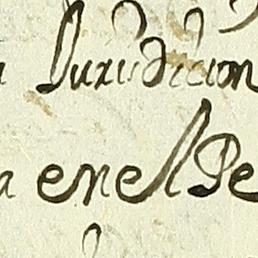 a Jurisdicion
a en el Pe